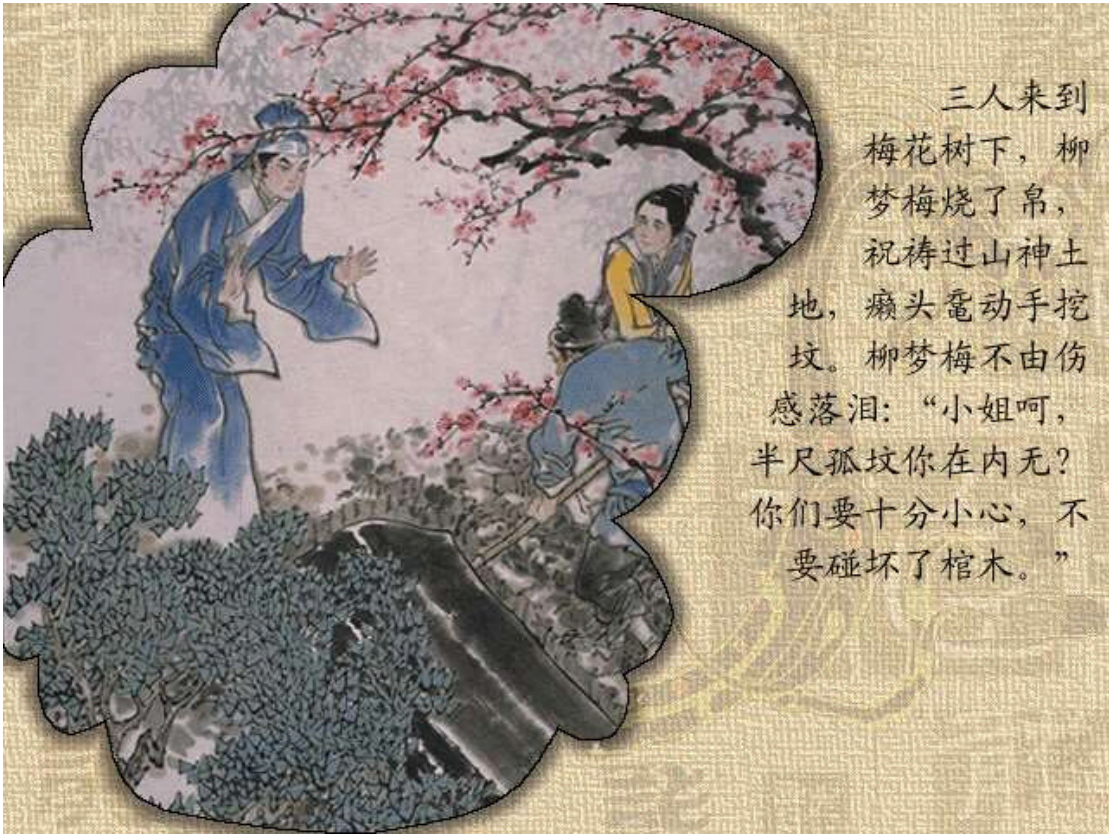 三人来到
梅花树下，柳
梦梅烧了帛，
祝祷过山神土
地，癞头鼋动手挖
坟。柳梦梅不由伤
感落泪：“小姐呵，
半尺孤坟你在内无？
你们要十分小心，不
要碰坏了棺木。”